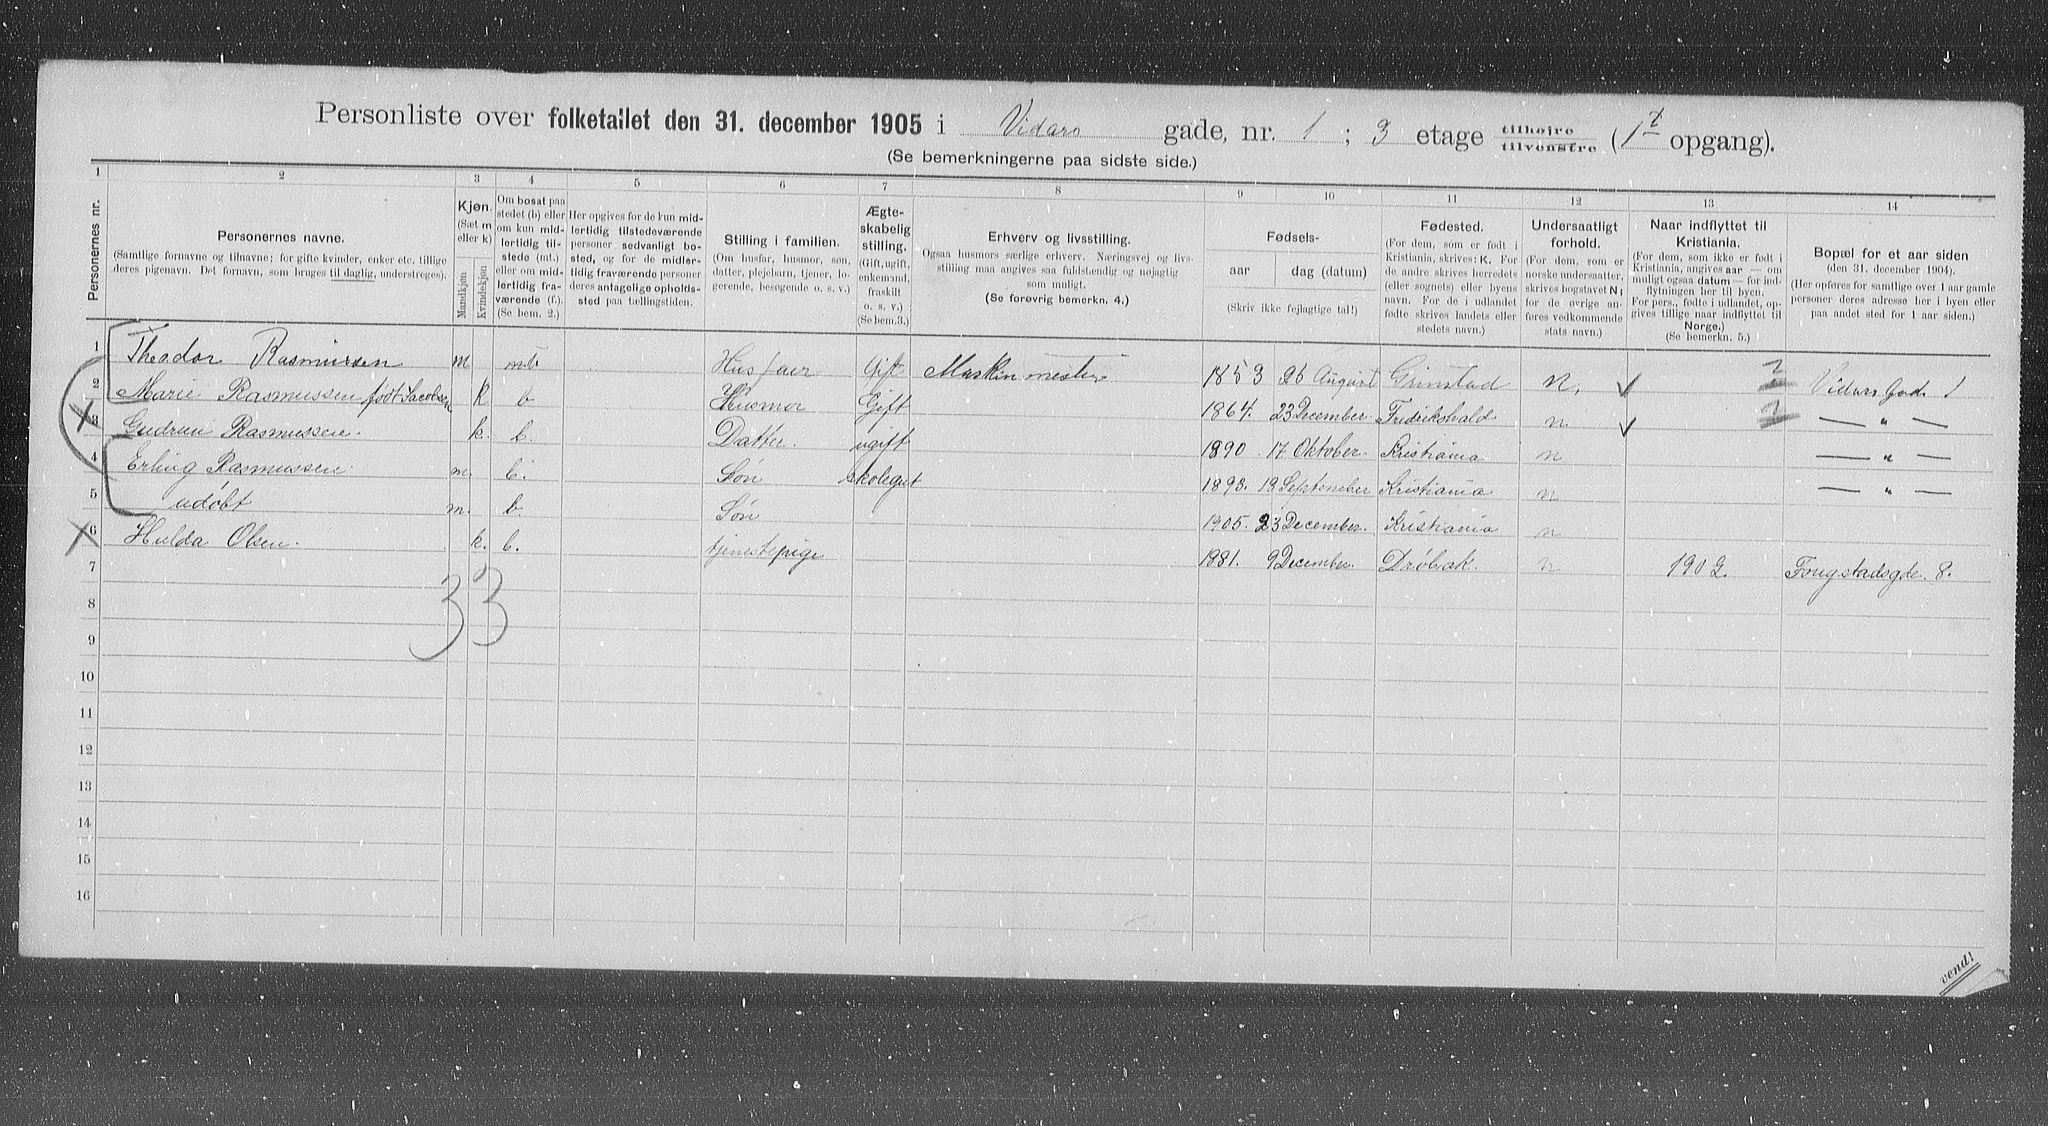 Personliste over folketallet den 31. december 1905 i Vidars gade, nr. 1 ; 3 etage tilhøjre tilvenstre (1st opgang).
(Se bemerkningerne paa sidste side.)
1 2 3 4 5 6 7 8 9 10 11 12 13 14
Personernes nr.
Personernes navne.
(Samtlige fornavne og tilnavne; for gifte kvinder, enker etc. tillige deres pigenavn. Det fornavn, som bruges til daglig, understreges).
Kjøn.
(Sæt m eller k)
Mandkjøn.
Kvindekjøn
Om bosat paa stedet (b) eller om kun midlertidig tilstede (mt.) eller om midlertidig fraværende (f.). (Se bem. 2.)
Her opgives for de kun midlertidig tilstedeværende personer sedvanligt bosted, og for de midlertidig fraværende personer deres antagelige opholdssted paa tællingstiden.
Stilling i familien.
(Om husfar, husmor, søn, datter, plejebarn, tjener, logerende, besøgende o. s. v.)
Ægteskabelig stilling.
(Gift, ugift, enkemand, fraskilt o. s. v.)
(Se bem.3.)
Erhverv og livsstilling.
Ogsaa husmors særlige erhverv. Næringsvej og livsstilling maa angives saa fuldstændig og nøjagtig som muligt.
(Se forøvrig bemerkn. 4.)
Fødsels-
aar dag (datum)
(Skriv ikke fejlagtige tal!)
Fødested.
(For dem, som er født i Kristiania, skrives: K. For de andre skrives herredets (eller sognets) eller byens navn. For de i udlandet fødte skrives landets eller stedets navn.)
Undersaatligt forhold.
(For dem, som er norske undersaatter, skrives bogstavet N; for de øvrige anføres vedkommende stats navn.)
Naar indflyttet til Kristiania.
(For dem, som ikke er født i Kristiania, angives aar — om muligt ogsaa datum — for indflytningen her til byen. For pers., fødte i udlandet, opgives tillige naar indflyttet til Norge.)
(Se bemerkn. 5.)
Bopæl for et aar siden
(den 31. december 1904).
(Her opføres for samtlige over 1 aar gamle personer deres adresse her i byen eller paa andet sted for 1 aar siden.)
1 Theodor Rasmussen m mt Husfaer Gift Maskinmester 1853 26 August Grimstad N. Vidars Gade 1
2 Marie Rasmussen født Jacobsen k b Husmor Gift 1864. 23 December Fredrikshald n — " —
3 Gudrun Rasmussen. k. b. Datter. ugift 1890 17 Oktober Kristiania n — " —
4 Erling Rasmussen. m. b. Søn skolegut 1893. 18 September Kristiania n — " —
5 udøbt m. b. Søn 1905. 23 December. Kristiania n
6 Hulda Olsen. k. b. tjenestepige 1881. 9 December. Drøbak. n 1902. Fougstadsgde. 8.
7
33
8
9
10
11
12
13
14
15
16
vend!